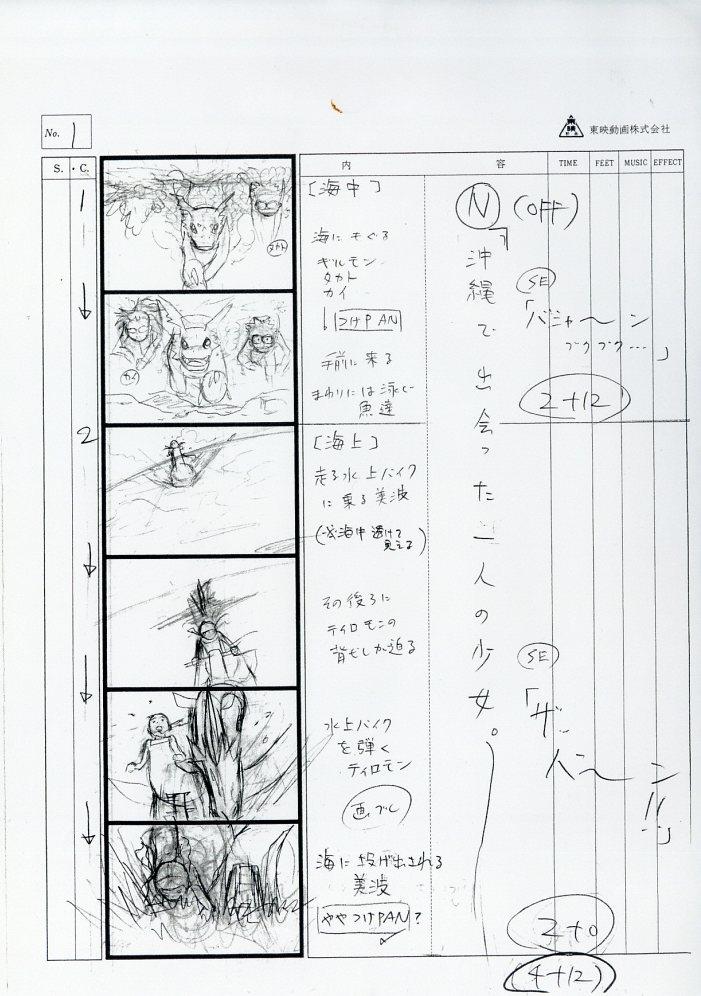 No. 1
東映動画株式会社
S. ・ C.
内 容
TIME FEET MUSIC EFFECT
1
タカト
カイ
[海中]
海にもぐる
ギルモン
タカト
カイ
つけPAN
手前に来る
まわりには泳ぐ
魚達
N (OFF)
「沖縄で出会った一人の少女。
SE
「バシャ〜ン
ブクブク…」
2+12
2
[海上]
走る水上バイク
に乗る美波
(※海中透けて
見える)
その後ろに
ティロモンの
背びレが迫る
水上バイク
を弾く
ティロモン
画ブレ
海に投げ出される
美波
ややつけPAN?
SE
「ザッ
パ〜ン
!!」
2+0
(4+12)